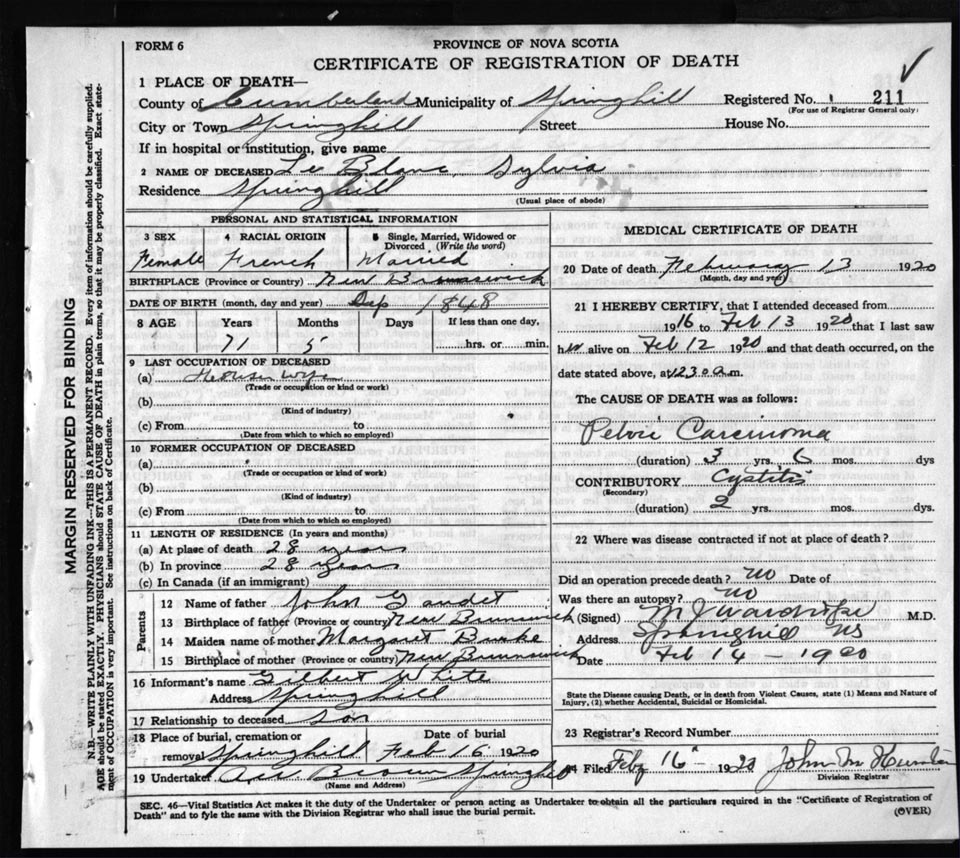 FORM 6
PROVINCE OF NOVA SCOTIA
CERTIFICATE OF REGISTRATION OF DEATH
MARGIN RESERVED FOR BINDING
N.B.—WRITE PLAINLY WITH UNFADING INK—THIS IS A PERMANENT RECORD. Every item of information should be carefully supplied.
AGE should be stated EXACTLY. PHYSICIANS should STATE CAUSE OF DEATH in plain terms, so that it may be properly classified. Exact state-
ment of OCCUPATION is very important. See instructions on back of Certificate.
1 PLACE OF DEATH—
County of Cumberland Municipality of Springhill Registered No. 211
(For use of Registrar General only)
City or Town Springhill Street House No.
If in hospital or institution, give name
2 NAME OF DECEASED Le Blanc, Sylvia
Residence Springhill
(Usual place of abode)
PERSONAL AND STATISTICAL INFORMATION
3 SEX 4 RACIAL ORIGIN 5 Single, Married, Widowed or Divorced (Write the word)
Female French Married
BIRTHPLACE (Province or Country) New Brunswick
DATE OF BIRTH (month, day and year) Sep 1848
8 AGE Years Months Days If less than one day,
71 5 hrs. or min.
9 LAST OCCUPATION OF DECEASED
(a) House wife
(Trade or occupation or kind or work)
(b)
(Kind of industry)
(c) From to
(Date from which to which so employed)
10 FORMER OCCUPATION OF DECEASED
(a)
(Trade or occupation or kind of work)
(b)
(Kind of industry)
(c) From to
(Date from which to which so employed)
11 LENGTH OF RESIDENCE (In years and months)
(a) At place of death 28 years
(b) In province 28 years
(c) In Canada (if an immigrant)
Parents
12 Name of father John Gaudet
13 Birthplace of father (Province or country) New Brunswick
14 Maiden name of mother Margaret Burke
15 Birthplace of mother (Province or country) New Brunswick
16 Informant's name Gilbert White
Address Springhill
17 Relationship to deceased son
18 Place of burial, cremation or removal Springhill Date of burial Feb 16 1920
19 Undertaker Brown Springhill
(Name and Address)
MEDICAL CERTIFICATE OF DEATH
20 Date of death February 13 1920
(Month, day and year)
21 I HEREBY CERTIFY, that I attended deceased from
1916 to Feb 13 1920 that I last saw
her alive on Feb 12 1920 and that death occurred, on the
date stated above, at 12.30 a.m.
The CAUSE OF DEATH was as follows:
Pelvic Carcinoma
(duration) 3 yrs. 6 mos. dys
CONTRIBUTORY Cystitis
(Secondary)
(duration) 2 yrs. mos. dys.
22 Where was disease contracted if not at place of death?
Did an operation precede death? no Date of
Was there an autopsy? no
(Signed) M J Wardrope M.D.
Address Springhill NS
Date Feb 14 – 1920
State the Disease causing Death, or in death from Violent Causes, state (1) Means and Nature of
Injury, (2) whether Accidental, Suicidal or Homicidal.
23 Registrar's Record Number
24 Filed Feby 16" 1920 John M
Division Registrar
SEC. 46—Vital Statistics Act makes it the duty of the Undertaker or person acting as Undertaker to obtain all the particulars required in the "Certificate of Registration of
Death" and to fyle the same with the Division Registrar who shall issue the burial permit.
(OVER)